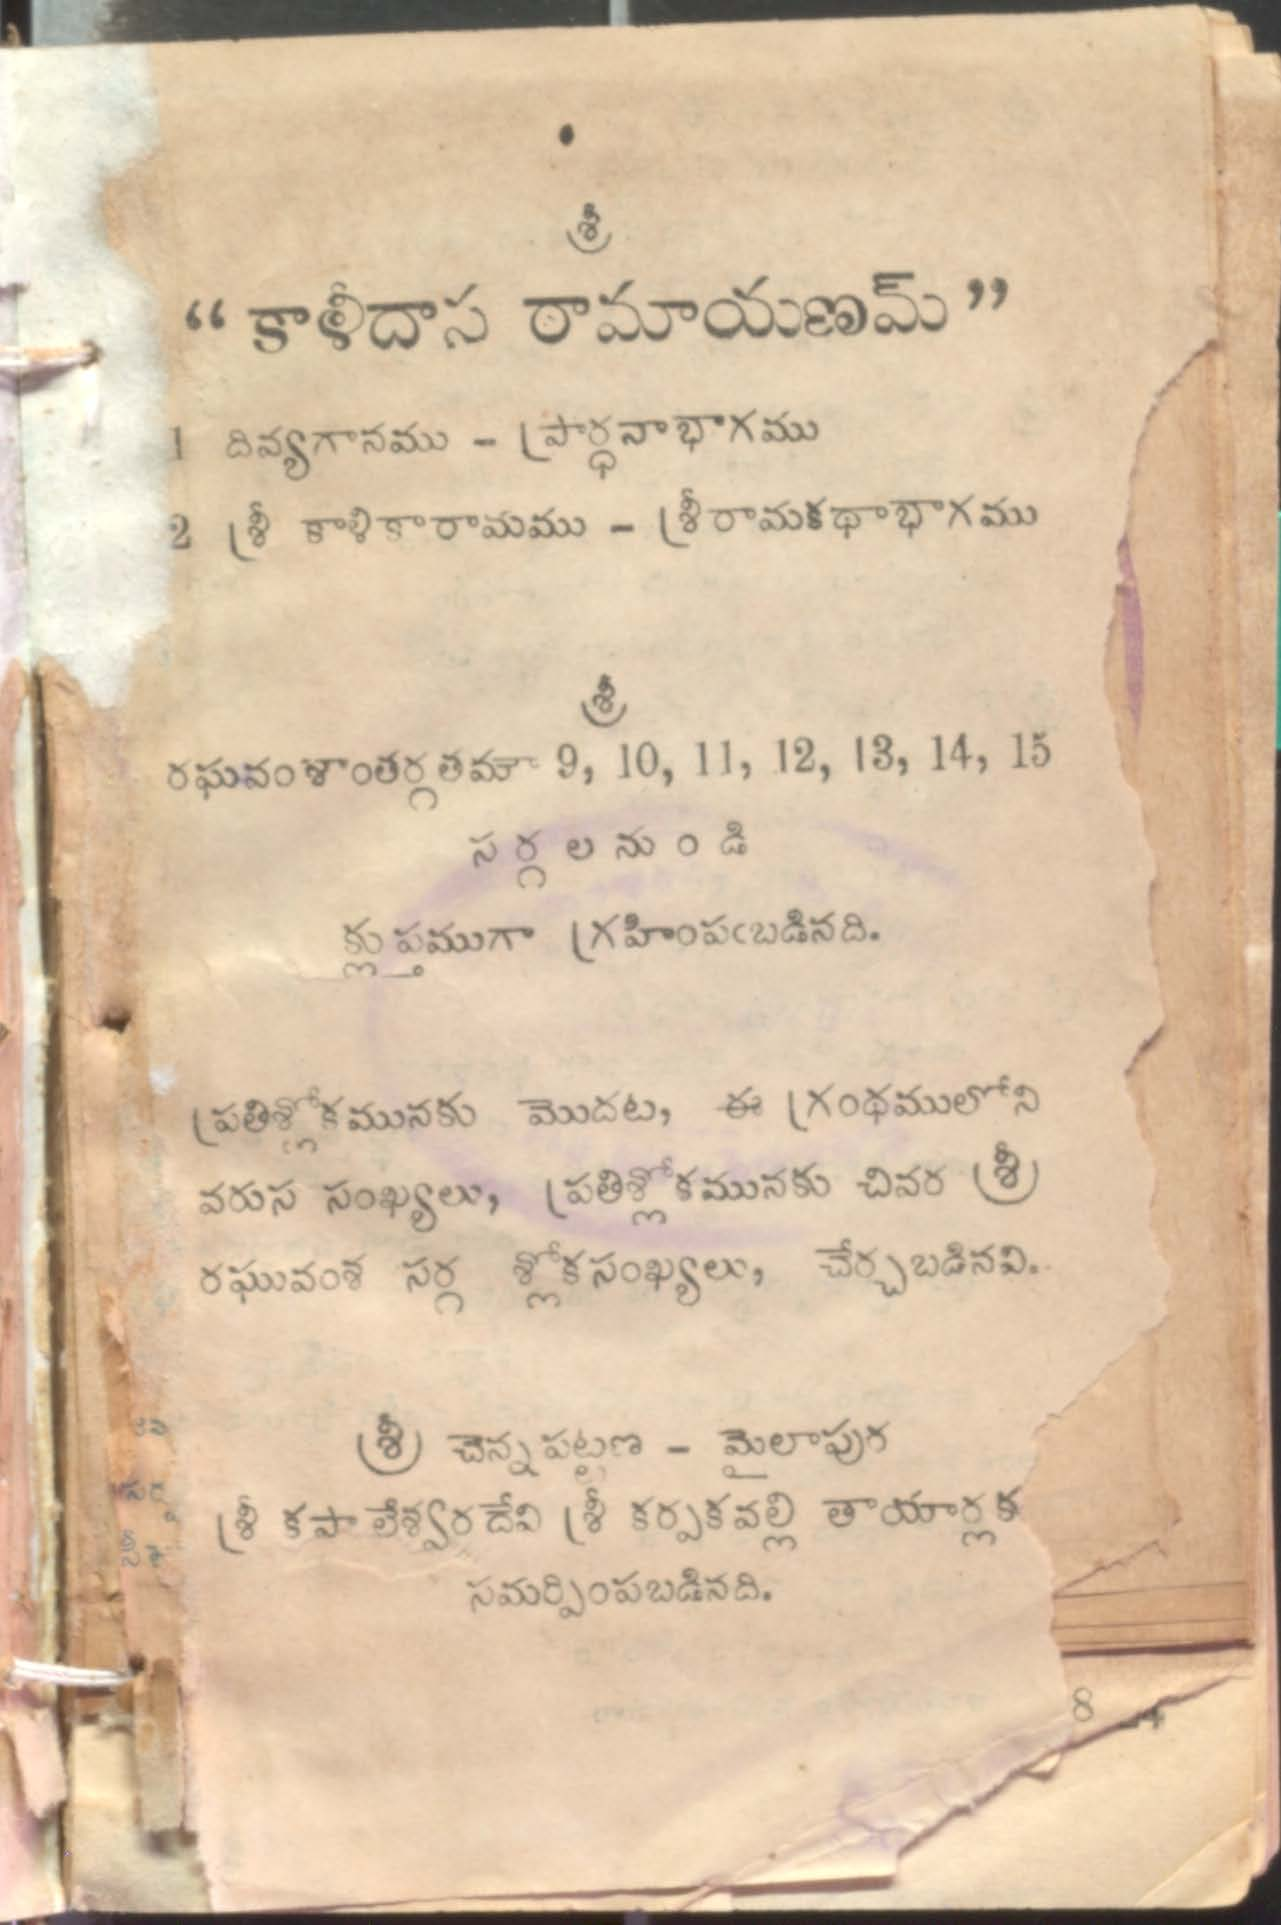 శ్రీ
“ కాళిదాస రామాయణమ్ ”
1 దివ్యగానము – ప్రార్ధనాభాగము
2 శ్రీ కాళికారామము – శ్రీరామకథాభాగము
శ్రీ
రఘవంశాంతర్గతమౌ 9, 10, 11, 12, 13, 14, 15
సర్గల నుండి
క్లుప్తముగా గ్రహింపఁబడినది.
ప్రతిశ్లోకమునకు మొదట, ఈ గ్రంథములోని
వరుస సంఖ్యలు, ప్రతిశ్లోకమునకు చివర శ్రీ
రఘువంశ సర్గ శ్లోకసంఖ్యలు, చేర్చబడినవి.
శ్రీ చెన్నపట్టణ – మైలాపుర
శ్రీ కపాలేశ్వరదేవి శ్రీ కర్పకవల్లి తాయార్లక
సమర్పింపబడినది.
8